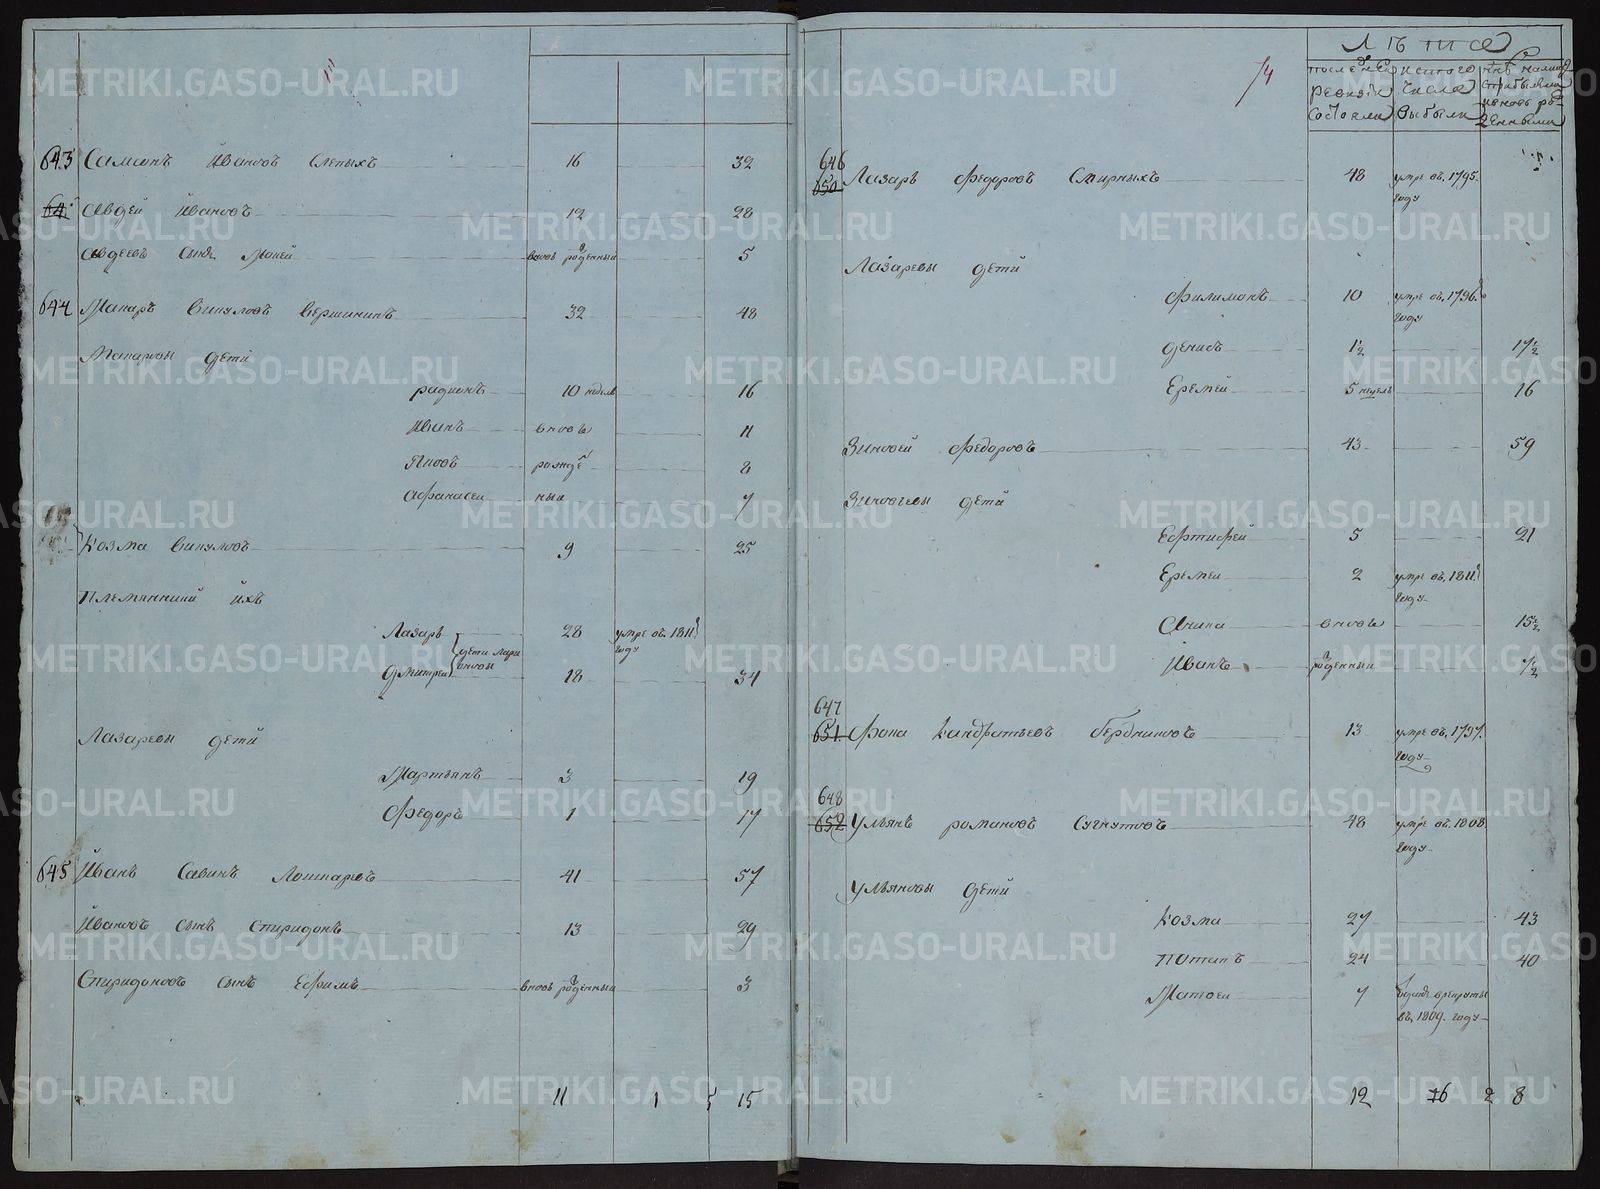 643 Самсонъ Ивановъ Слепыхъ 16 32
64 Авдей Ивановъ 12 28
Авдеевъ сынъ Моисей вновь рожденный 5
644 Макаръ Викуловъ Вершининъ 32 48
Макаровы дети
радионъ 10 недель 16
Иванъ вновь 11
Яковъ рожде 8
Афанасеи ныи 7
Козма Викуловъ 9 25
Племянники ихъ
Лазарь 28 умре въ 1811
году
дети Лари
оновы
Дмитреи 18 34
Лазаревы дети
Мартьянъ 3 19
Федоръ 1 17
645 Иванъ Савинъ 41 57
Ивановъ сынъ Спиридонъ 13 29
Спиридоновъ сынъ Ефимъ вновь рожденныи 3
11 1 5 15
74
Лѣта
последней
ревизіи
Состояли
изъ того
числа
выбыли
646
650 Лазарь Федоровъ Смирныхъ 48 умре въ 1795
году
Лазаревы дети
Филимонъ 10 умре въ 1796
году
Денисъ 1½ 17½
Еремей 5 недель 16
Зиновей Федоровъ 43 59
Зиновьевы дети
Ефтифей 5 21
Еремеи 2 умре въ 1811
году
Аника вновь 15½
Иванъ рожденныи ½
647
651 Фока Кандратьевъ 13 умре въ 1797
году
648
652 Ульянъ романовъ 48 умре въ 1808
году
Ульяновы дети
Козма 27 43
Потапъ 24 40
Матвеи 7
въ 1809 году
12 6 2 8
METRIKI.GASO-URAL.RU